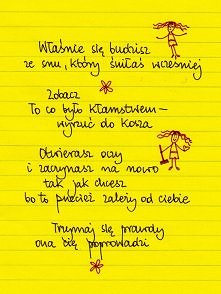 Właśnie się budzisz
ze snu, który śniłaś wcześniej
Zobacz
To co było kłamstwem –
wyrzuć do kosza
Otwierasz oczy
i zaczynasz na nowo
tak jak chcesz
bo to przecież zależy od ciebie
Trzymaj się prawdy
ona cię poprowadzi